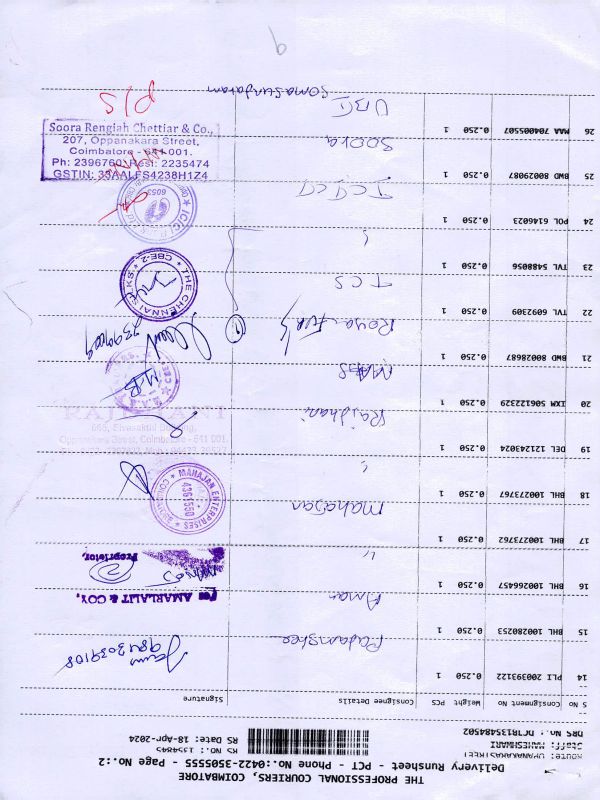 THE PROFESSIONAL COURIERS, COIMBATORE
Delivery Runsheet - PCT - Phone No.:0422-3505555 - Page No.:2
Staff: MAHESHWARI
RS Date: 18-Apr-2024
DRS No.: DCTR135484502
S No Consignment No Weight PCS Consignee Details Signature
14 PLI 200393122 0.250 1
9843039108
15 BHL 100280253 0.250 1 Aman
For AMARLALIT & COY,
16 BHL 100266457 0.250 1 "
Proprietor,
17 BHL 100273762 0.250 1 Mahajan
MAHAJAN ENTERPRISES
4361550
18 BHL 100273767 0.250 1 "
19 DEL 121243024 0.250 1 Rajdhani
665, Sivasakthi Building,
Oppanakara Street, Coimbatore - 641 001.
20 IXM 506122329 0.250 1
21 BWD 80028687 0.250 1
22 TVL 6092309 0.250 1 TCS
THE CHENNAI SILKS
CBE-2
23 TVL 5488056 0.250 1 "
24 POL 6146023 0.250 1 ICICI
6053
25 BWD 80029087 0.250 1 Soora
Soora Rengiah Chettiar & Co.,
207, Oppanakara Street,
Coimbatore - 641 001.
Ph: 2396760, Resi: 2235474
GSTIN: 33AALFS4238H1Z4
26 MAA 704005507 0.250 1 UBI
Somasundaram
P/S
9